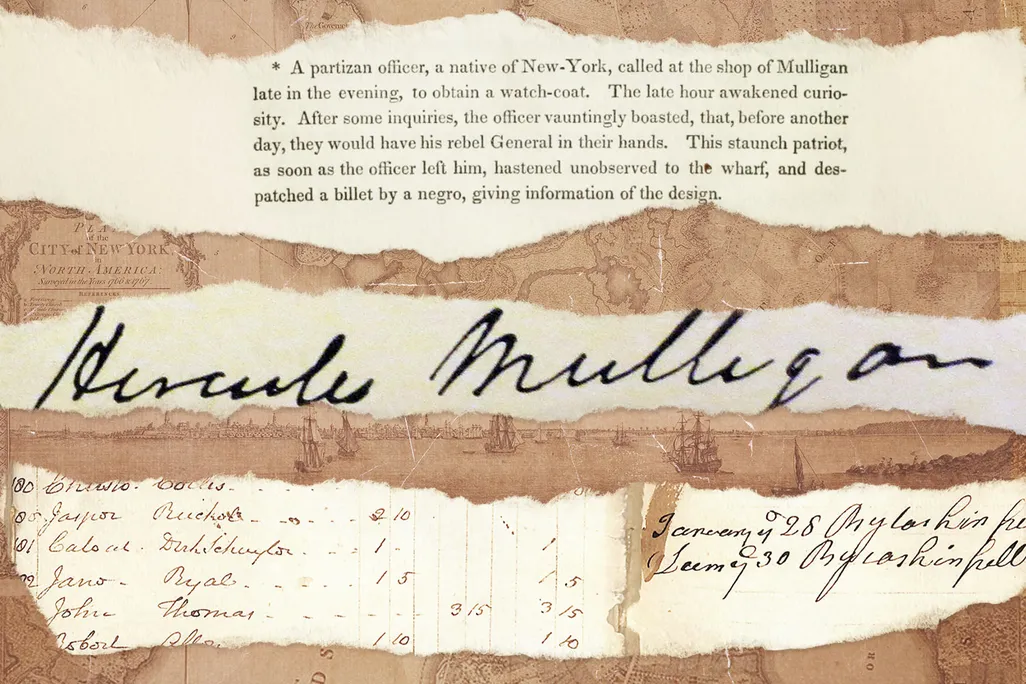 The Governor
* A partizan officer, a native of New-York, called at the shop of Mulligan
late in the evening, to obtain a watch-coat. The late hour awakened curio-
sity. After some inquiries, the officer vauntingly boasted, that, before another
day, they would have his rebel General in their hands. This staunch patriot,
as soon as the officer left him, hastened unobserved to the wharf, and des-
patched a billet by a negro, giving information of the design.
PLA
of the
CITY of NEW YORK,
in
NORTH AMERICA:
Surveyed in the Years 1766 & 1767
REFERENCES
Hercules Mulligan
Jaspor 2 10
1 1
Jano Ryal 1 5 1 5
John Thomas 3 15 3 15
Robert 1 10 1 10
January ye 28 By Cash in
30 By Cash in full
OR